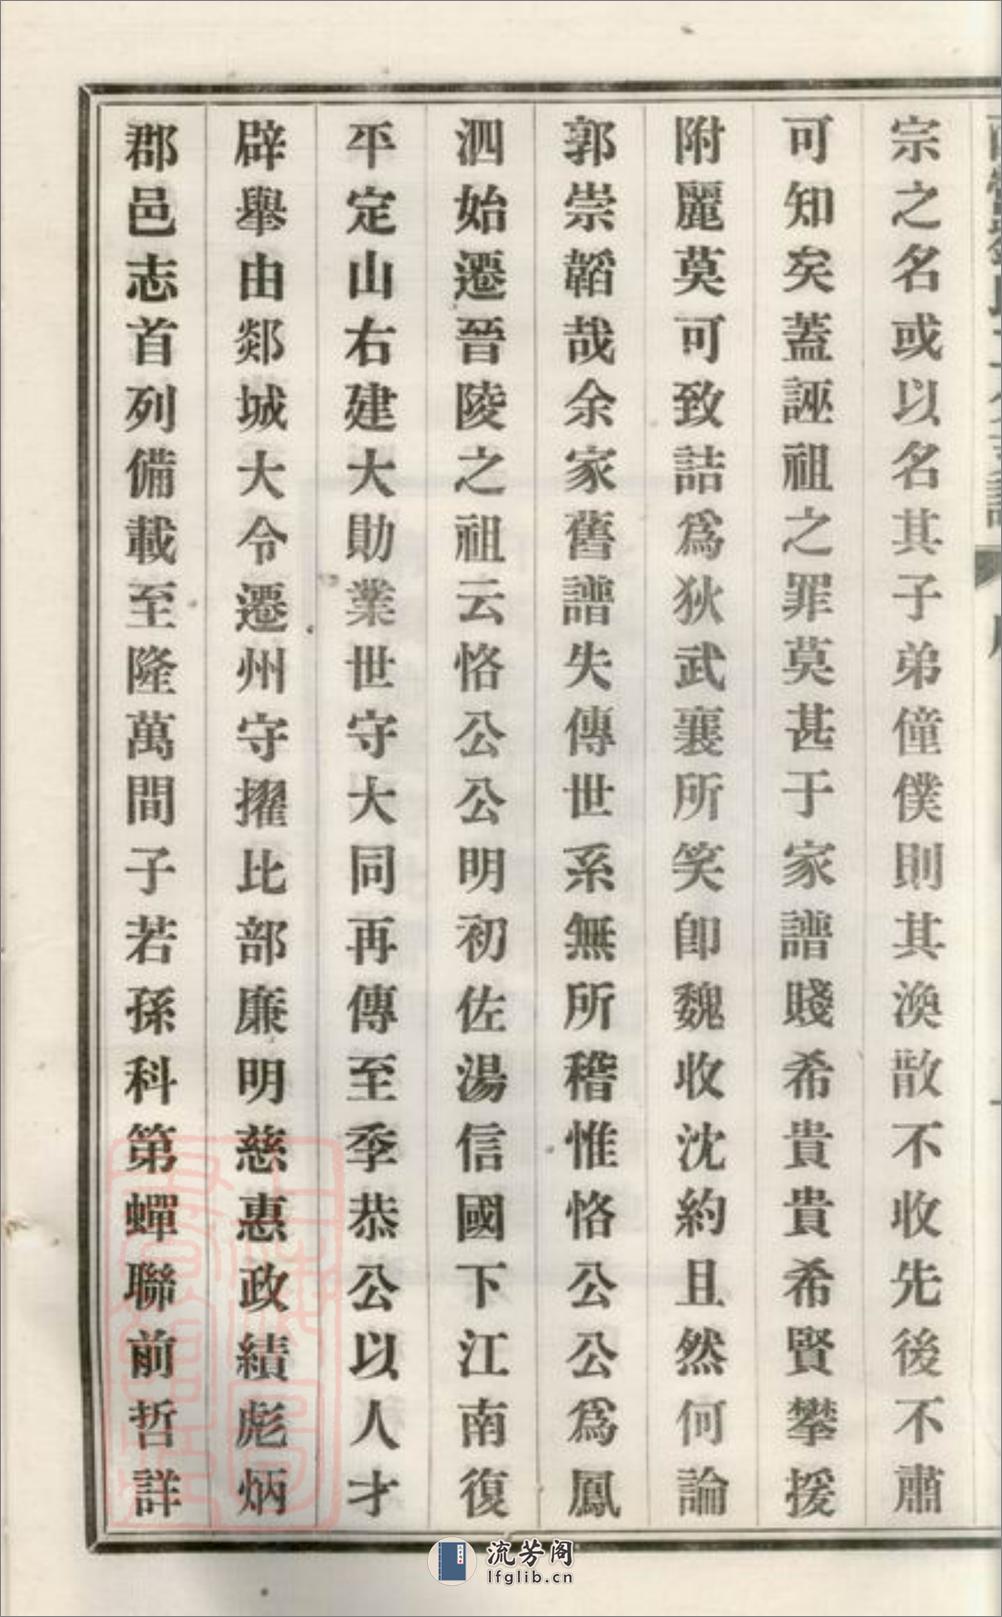 宗之名或以名其子弟僮僕則其渙散不收先後不肅
可知矣蓋誣祖之罪莫甚于家譜賤希貴貴希賢攀援
附麗莫可致詰爲狄武襄所笑卽魏收沈約且然何論
郭崇韜哉余家舊譜失傳世系無所稽惟恪公公爲鳳
泗始遷晉陵之祖云恪公公明初佐湯信國下江南復
平定山右建大勛業世守大同再傳至季恭公以人才
辟舉由郯城大令遷州守擢比部廉明慈惠政績彪炳
郡邑志首列備載至隆萬間子若孫科第蟬聯前哲詳
流芳阁
lfglib.cn